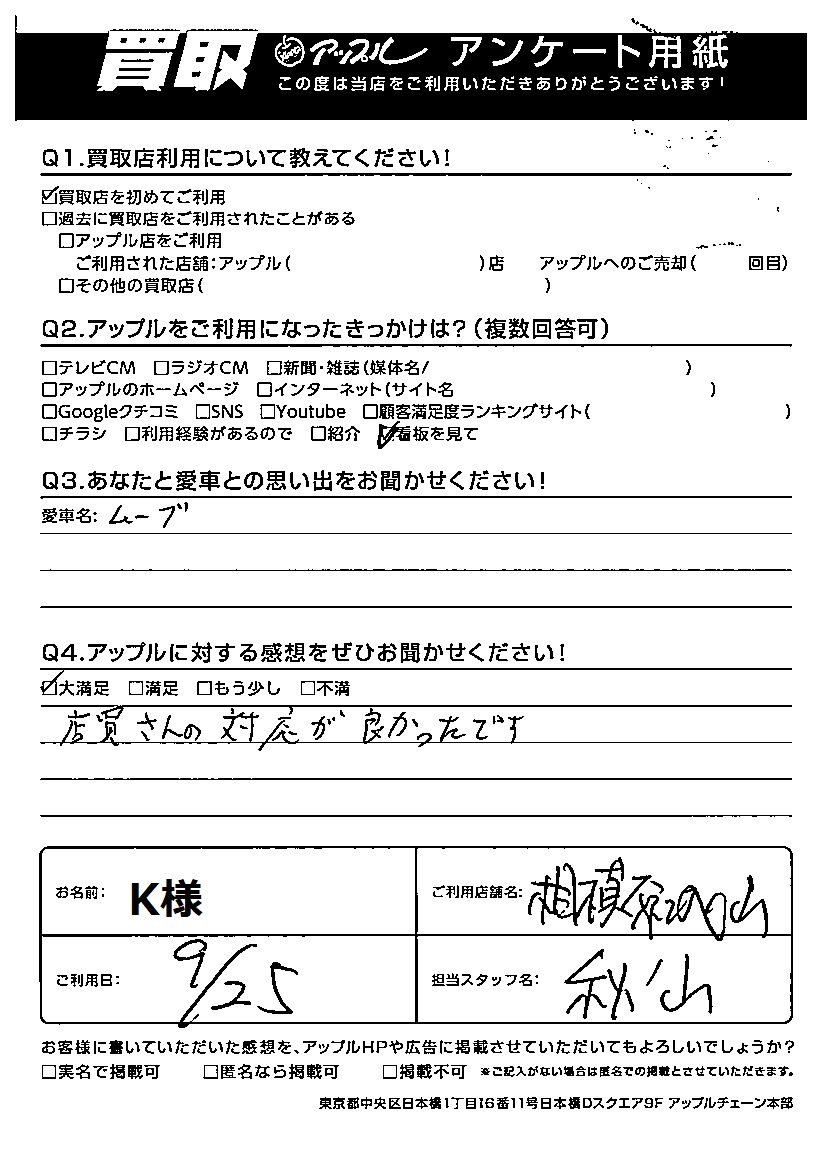 買取 アップル アンケート用紙
この度は当店をご利用いただきありがとうございます!
Q1.買取店利用について教えてください!
☑買取店を初めてご利用
□過去に買取店をご利用されたことがある
□アップル店をご利用
ご利用された店舗:アップル( )店 アップルへのご売却( 回目)
□その他の買取店( )
Q2.アップルをご利用になったきっかけは?(複数回答可)
□テレビCM □ラジオCM □新聞・雑誌(媒体名/ )
□アップルのホームページ □インターネット(サイト名 )
□Googleクチコミ □SNS □Youtube □顧客満足度ランキングサイト( )
□チラシ □利用経験があるので □紹介 ☑看板を見て
Q3.あなたと愛車との思い出をお聞かせください!
愛車名: ムーブ
Q4.アップルに対する感想をぜひお聞かせください!
☑大満足 □満足 □もう少し □不満
店買さんの対応が良かったです
お名前: K様 ご利用店舗名: 相模原
ご利用日: 9/25 担当スタッフ名: 秋山
お客様に書いていただいた感想を、アップルHPや広告に掲載させていただいてもよろしいでしょうか?
□実名で掲載可 □匿名なら掲載可 □掲載不可 ※ご記入がない場合は匿名での掲載とさせていただきます。
東京都中央区日本橋1丁目16番11号日本橋Dスクエア9F アップルチェーン本部